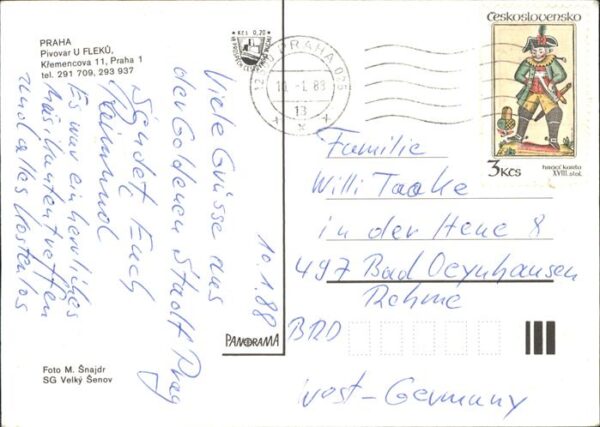 PRAHA
Pivovar U FLEKŮ,
Křemencova 11, Praha 1
tel. 291 709, 293 937
KČS 0,70
PRAHA 05
10.-1.88
13
Československo
3 Kčs
hrací karta
XVIII. stol.
10.1.88
Viele Grüsse aus
der Goldenen Stadt Prag
sendet Euch
Reimund
Es war ein herrliches
Musikantentreffen
und alles kostenlos
Familie
Willi Taake
in der Hene 8
497 Bad Oeynhausen
Rehme
BRD
West-Germany
PANORAMA
Foto M. Šnajdr
SG Velký Šenov